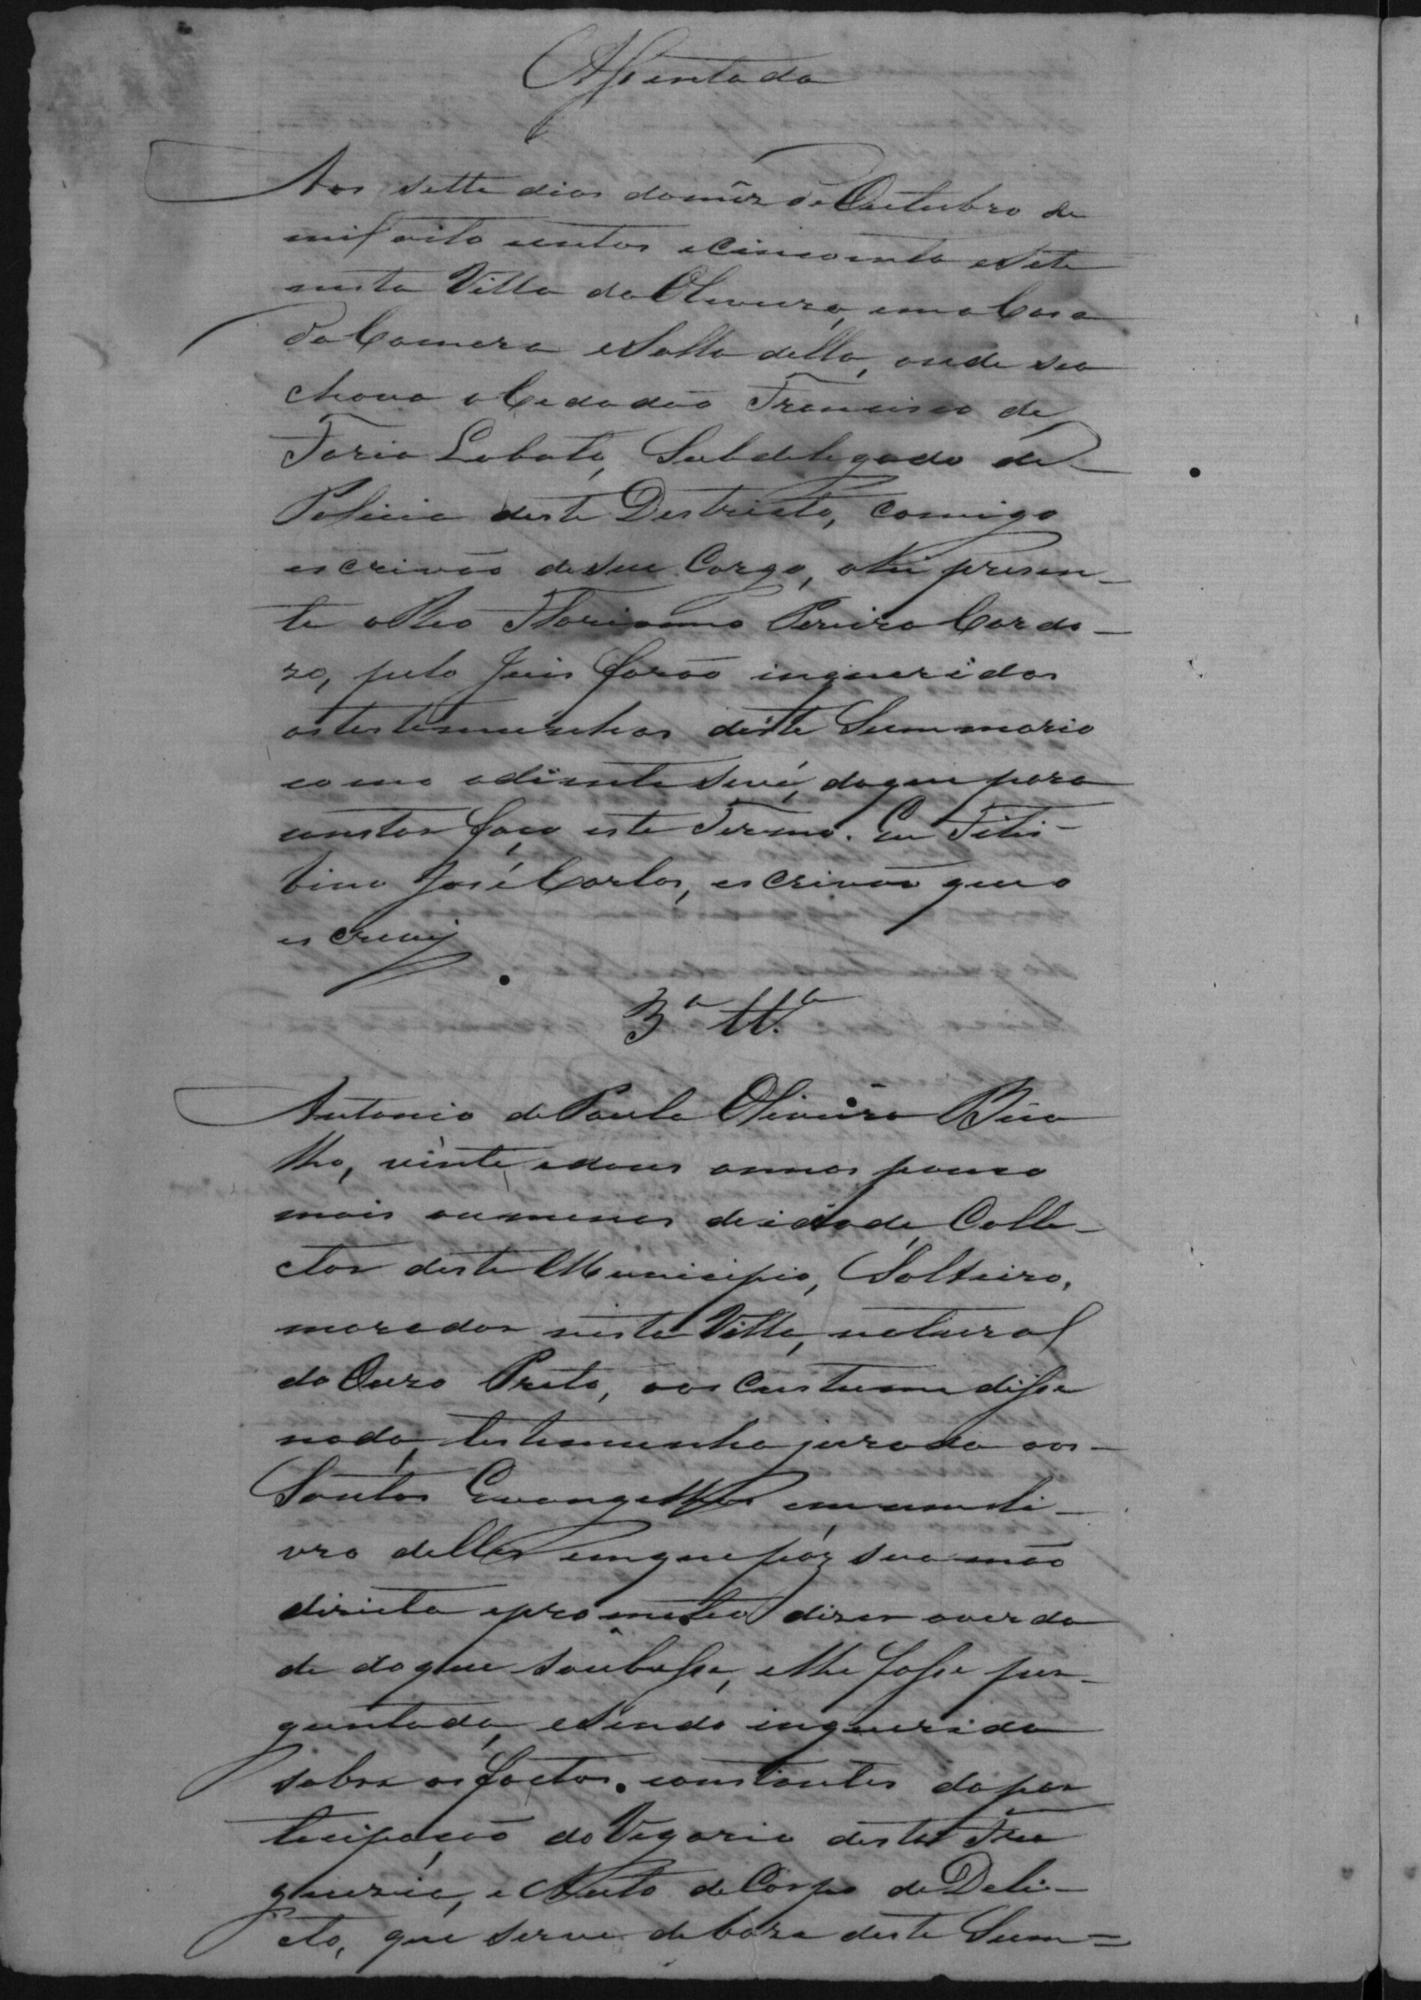 Assentada
Aos sette dias do mêz de Outubro de
mil oito centos e cincoenta e sete
nesta Villa da Oliveira, em a Casa
da Camera e Salla della, onde se a
chava o Cedadão Francisco de
Faria Lobato, Subdelegado de
Policia deste Destricto, comigo
escrivão de seu Cargo, ahi presen-
te o Reo Floriano Pereira Cardo-
zo, pelo Juis forão inqueridas
as testemunhas deste Summario
como adiante se vê, do que para
constar faço este Termo. Eu
José Carlos, escrivão que o
escrevi
3ª Ttª
Antonio de Paula Oliveira
lho, vinte e dous annos pouco
mais ou menos de idade, Colle-
ctor deste Municipio, Solteiro,
morador nesta Villa, natural
do Ouro Preto, aos custume disse
nada, testemunha jurada aos
Santos Evangelhos em um li-
vro delles em que pôz sua mão
direita e prometeo dizer a verda
de do que soubesse, e lhe fosse per-
guntado, e sendo inquerida
sobre os factos constantes da par
tecipação do Vigario desta Fre
guezia, e Auto de Corpo de Deli-
cto, que serve de baze deste Sum=